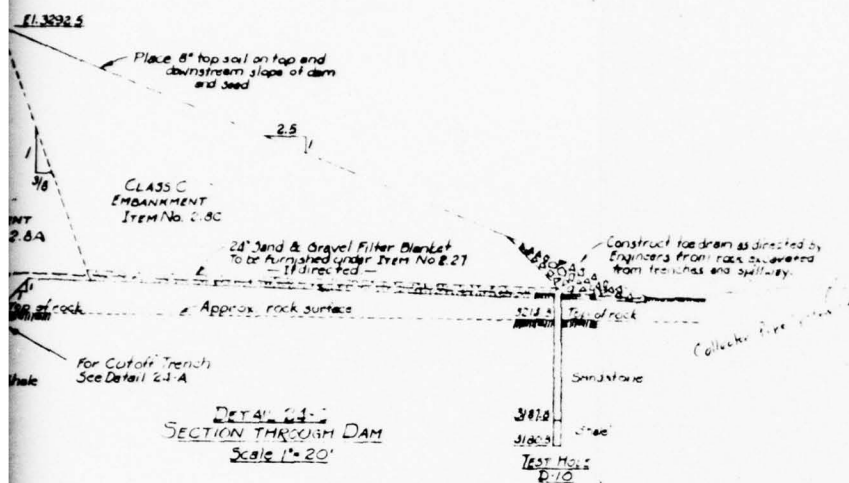 El. 3292.5
Place 8" top soil on top and
downstream slope of dam
and seed
2.5
1
1
3/8
CLASS C
EMBANKMENT
ITEM No. 2.8C
NT
2.8A
24" Sand & Gravel Filter Blanket
To be furnished under Item No 2.27
— If directed —
Construct toe drain as directed by
Engineers from rock excavated
from trenches and spillway.
1
Top of rock
Approx. rock surface
Top of rock
Collector Pipe
For Cutoff Trench
See Detail 24-A
Shale
Sandstone
DETAIL 24-
SECTION THROUGH DAM
Scale 1"= 20'
TEST HOLE
D-10